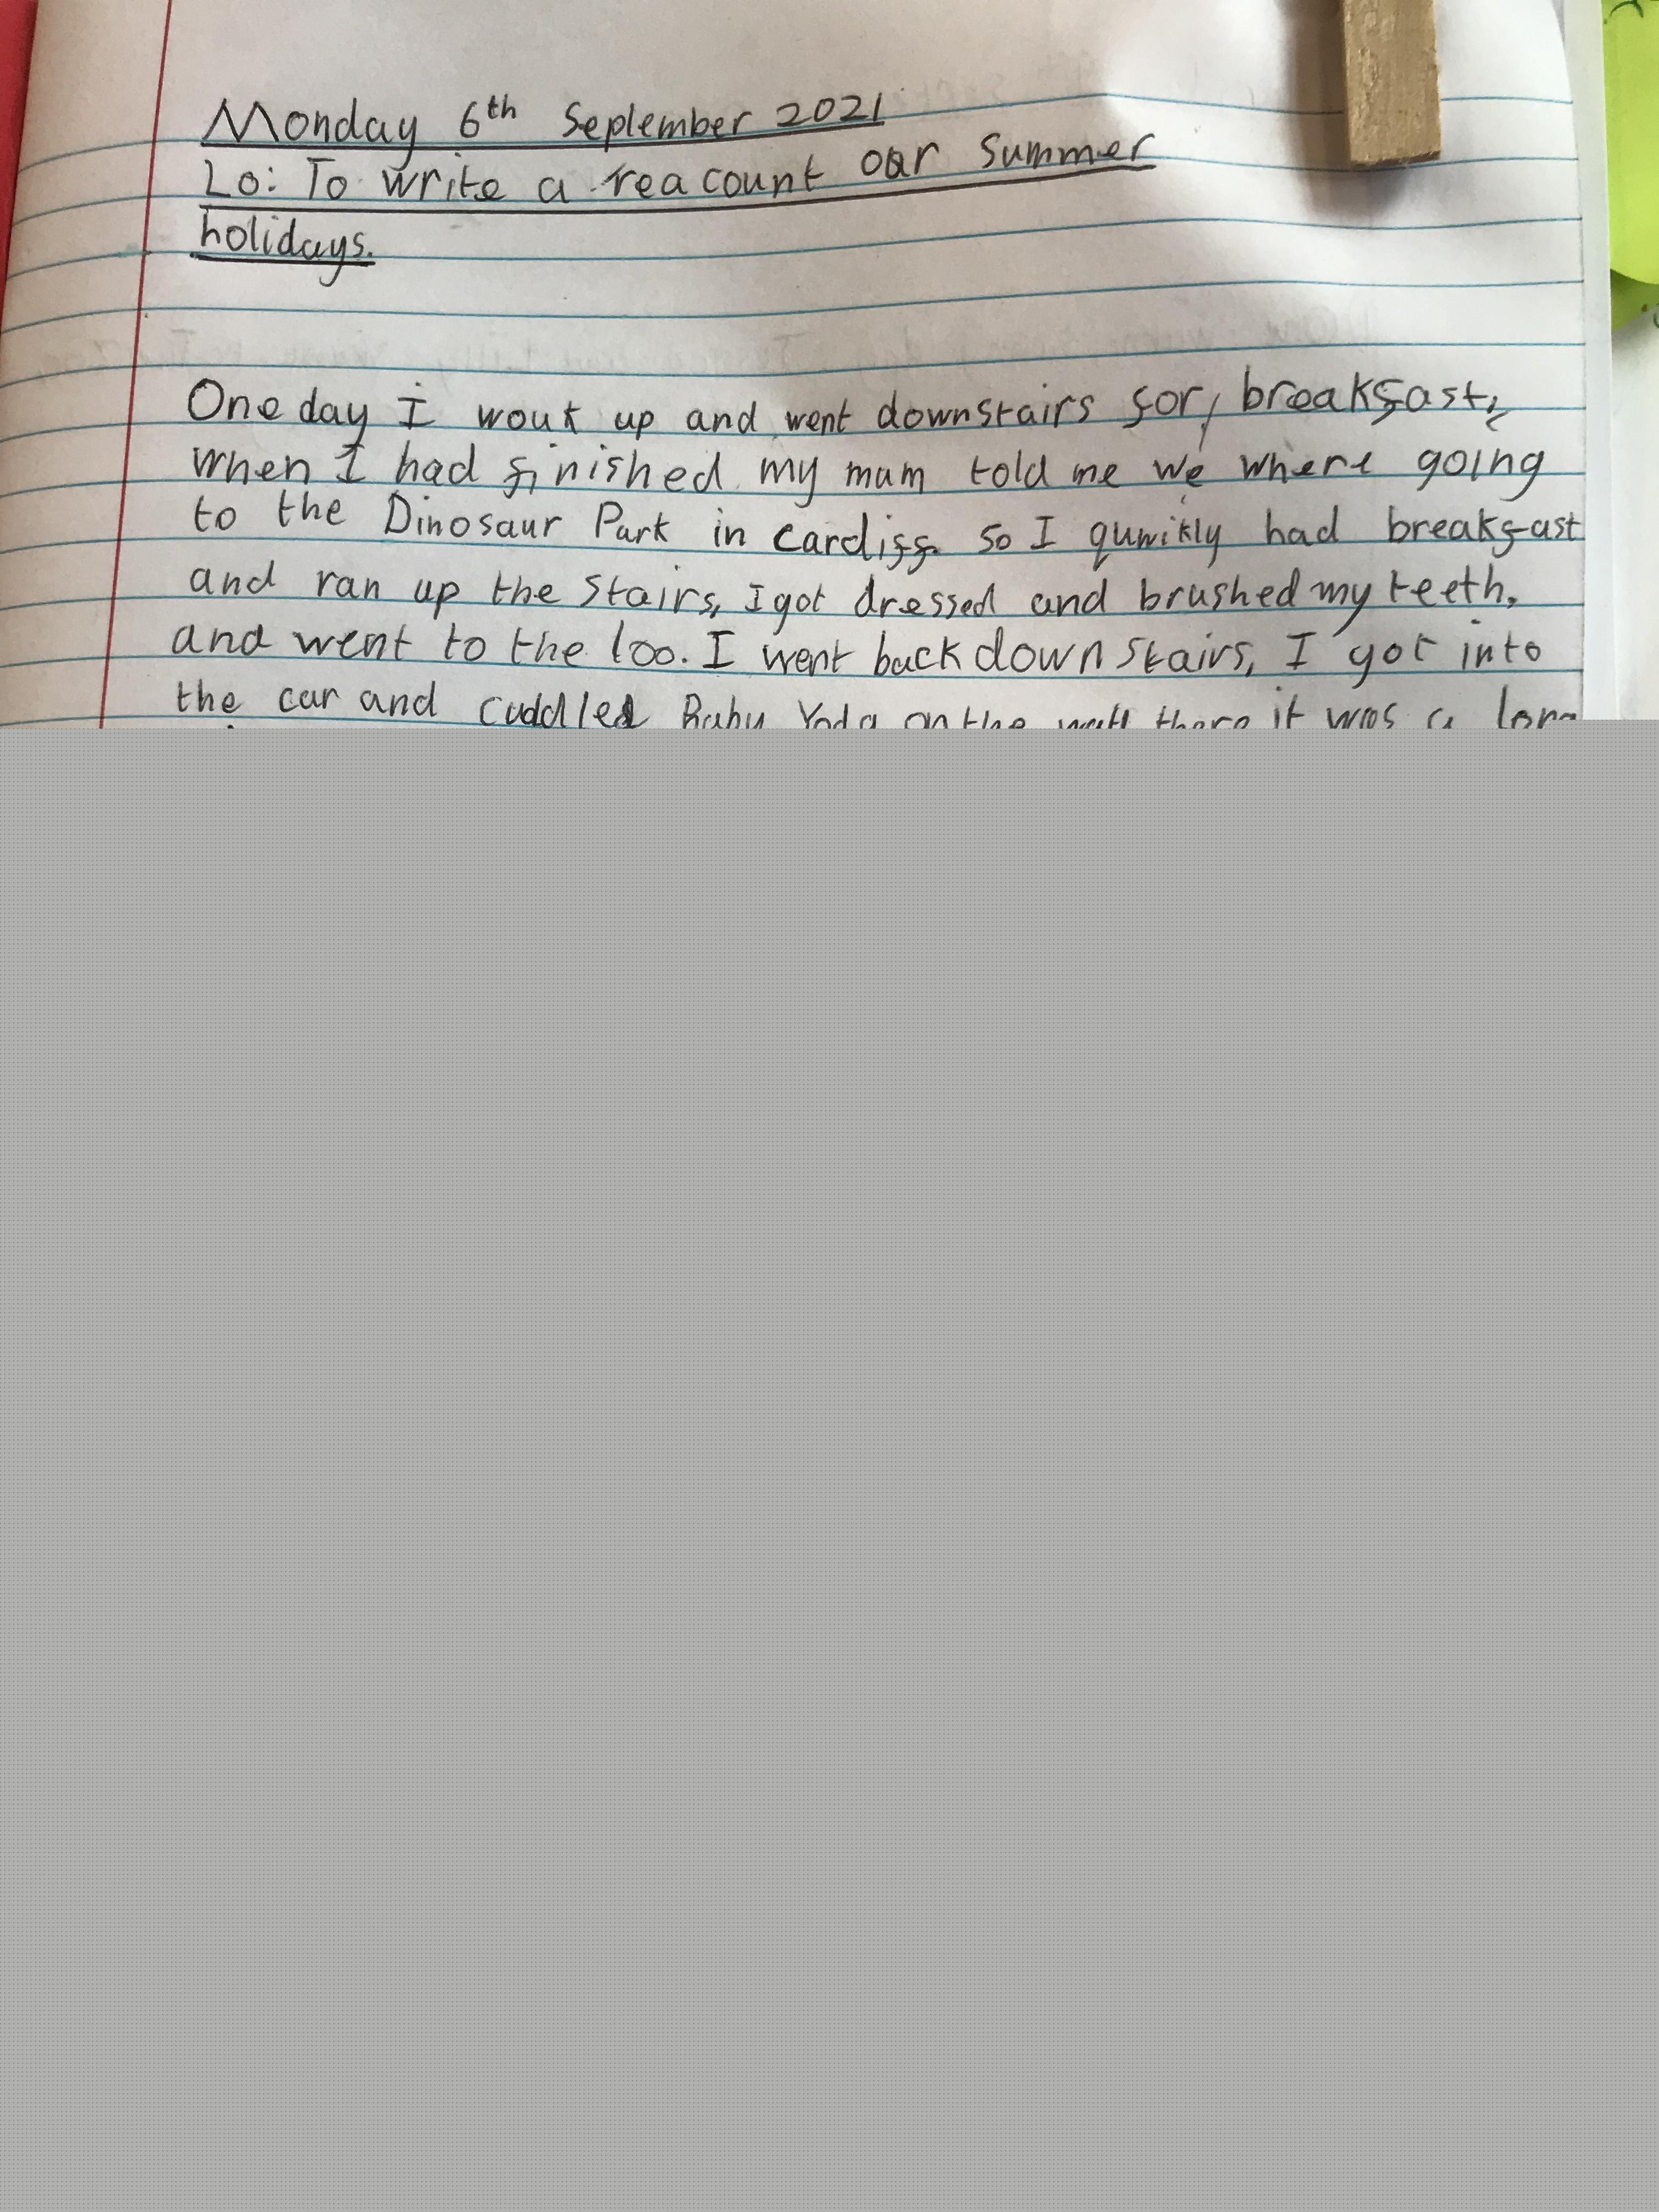 Monday 6th September 2021
Lo: To write a reacount our summer
holidays.
One day I wouk up and went downstairs for, breakfast,
when I had finished my mum told me we where going
to the Dinosaur Park in cardiff. so I quwikly had breakfast
and ran up the stairs, I got dressed and brushed my teeth,
and went to the loo. I went back down stairs, I got into
the car and cuddled Baby Yoda on the there it was a long